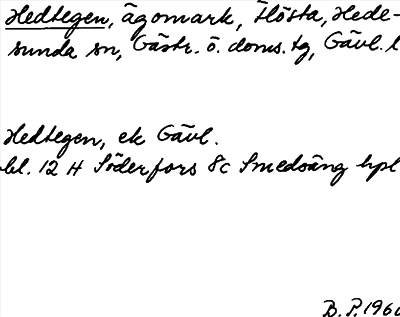 Hedtegen, ägomark, Hösta, Hede-
sunda sn, Gästr. ö. doms. tg, Gävl. l
Hedtegen, ek Gävl.
bl. 12 H Söderfors 8c Smedsäng hpl
B.P. 1960